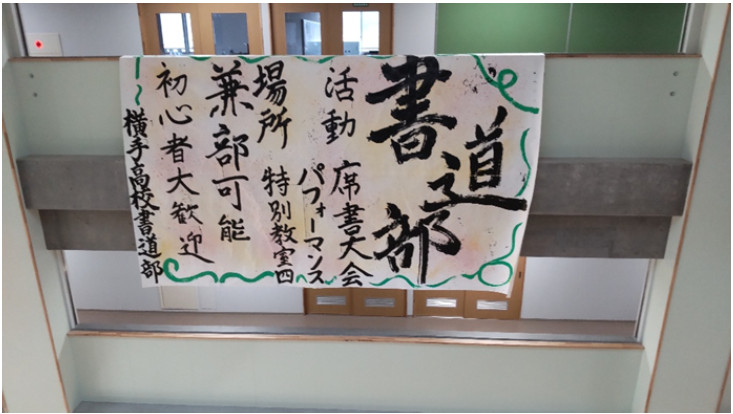 書道部
活動 席書大会
パフォーマンス
場所 特別教室四
兼部可能
初心者大歓迎
横手高校書道部